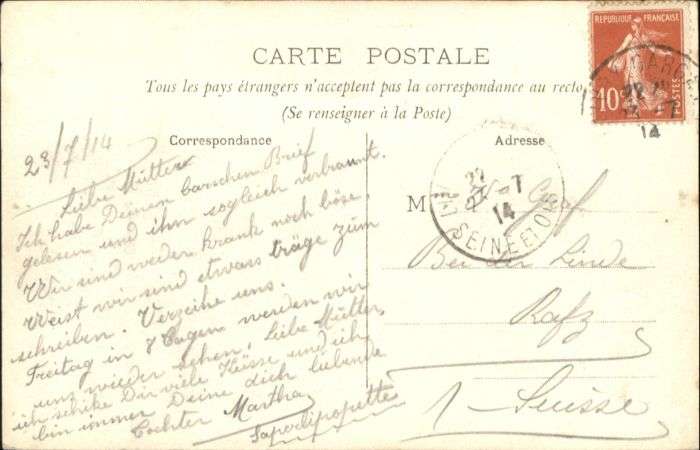 CARTE POSTALE
Tous les pays étrangers n'acceptent pas la correspondance au recto
(Se renseigner à la Poste)
Correspondance
Adresse
REPUBLIQUE FRANÇAISE
10c
POSTES
14
22
14
SEINE ET OISE
23/7/14
Liebe Mütter
Ich habe Deinen barschen Brief
gelesen und ihn sogleich verbrannt.
Wir sind weder krank noch böse.
Weist wir sind etwas träge zum
schreiben. Verzeihe uns.
Freitag in 8 Tagen werden wir
uns wieder sehen, Liebe Mütter
ich schike Dir viele Küsse und ich
bin immer Deine dich liebende
Tochter Martha
Saperlipopette
M Graf
Bei der Linde
Rafz
Suisse